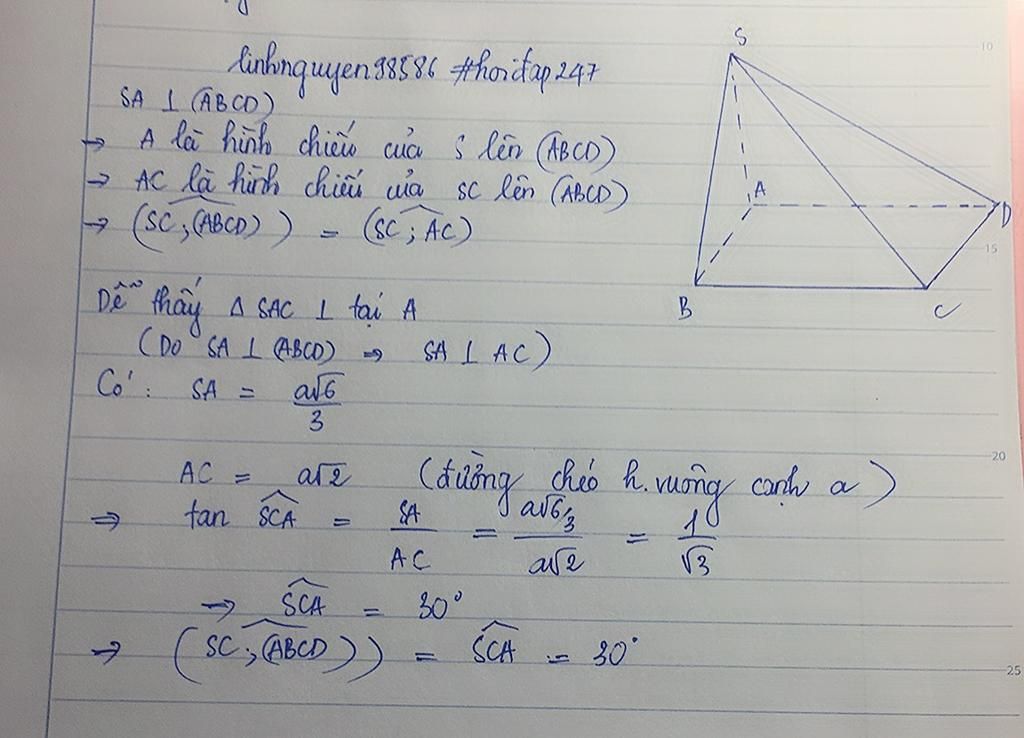 linhnguyen98586 #hoidap247
SA ⊥ (ABCD)
→ A là hình chiếu của S lên (ABCD)
→ AC là hình chiếu của SC lên (ABCD)
→ (SC; (ABCD)) = (SC; AC)
Dễ thấy Δ SAC ⊥ tại A
(Do SA ⊥ (ABCD) ⇒ SA ⊥ AC)
Có: SA = a√6/3
AC = a√2 (đường chéo h.vuông cạnh a)
⇒ tan SCA = SA/AC = (a√6/3)/(a√2) = 1/√3
→ SCA = 30°
→ (SC; (ABCD)) = SCA = 30°
S
A
D
B
C
10
15
20
25